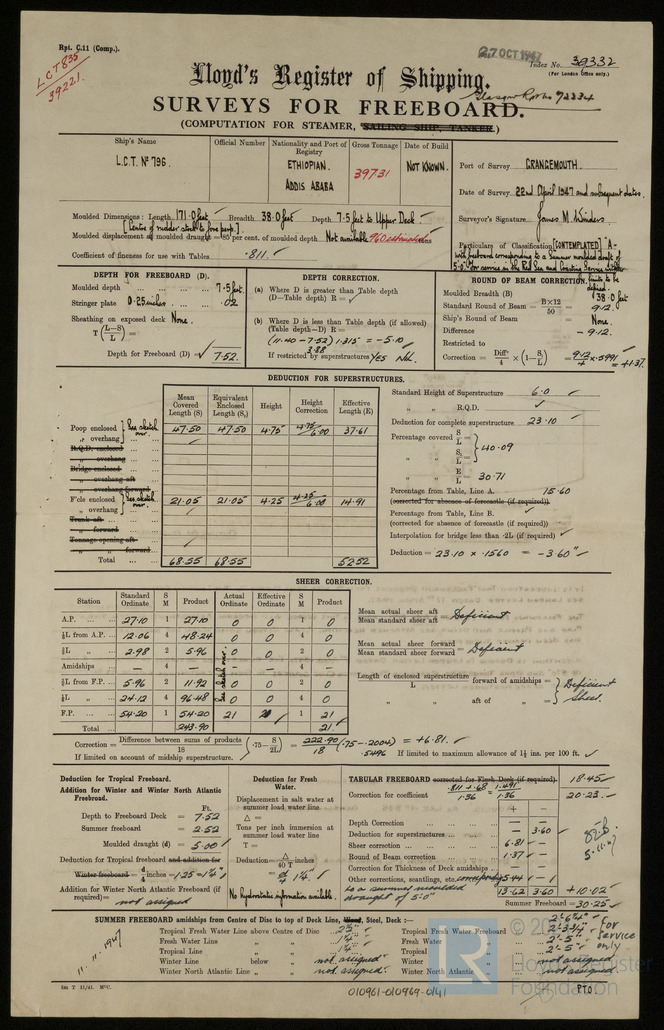 Rpt. C.11 (Comp.).
LCT 835
39221.
27 OCT 1947
Index No. 39332
(For London Office only.)
Lloyd's Register of Shipping.
Glasgow Rpt No 72334
SURVEYS FOR FREEBOARD.
(COMPUTATION FOR STEAMER, SAILING SHIP, TANKER.)
Ship's Name Official Number Nationality and Port of Registry Gross Tonnage Date of Build
L.C.T. No 796. ETHIOPIAN. ADDIS ABABA 39731 NOT KNOWN.
Port of Survey GRANGEMOUTH.
Date of Survey 22nd April 1947 and subsequent dates.
Surveyor's Signature James M. Winders
Particulars of Classification [CONTEMPLATED] "A-
with freeboard corresponding to a Summer moulded draft of
5'-0" "For service in the Red Sea and Coasting Service within
limits to be
defined.
Moulded Dimensions: Length 171.0 feet Breadth 38.0 feet Depth 7.5 feet to Upper Deck.
[Centre of rudder stock to fore perp.]
Moulded displacement at moulded draught = 85 per cent. of moulded depth Not available 960 estimated tons
Coefficient of fineness for use with Tables .811
DEPTH FOR FREEBOARD (D).
Moulded depth ... 7.5 feet.
Stringer plate 0.25 inches .02
Sheathing on exposed deck None.
T(L−S/L) =
Depth for Freeboard (D) = 7.52
DEPTH CORRECTION.
(a) Where D is greater than Table depth
(D−Table depth) R =
(b) Where D is less than Table depth (if allowed)
(Table depth−D) R =
(11.40 - 7.52) 1.315 = -5.10
3.88
If restricted by superstructures YES NIL.
ROUND OF BEAM CORRECTION.
Moulded Breadth (B) 38.0 feet
Standard Round of Beam = B×12/50 = 9.12.
Ship's Round of Beam = None.
Difference - 9.12.
Restricted to
Correction = Diff/4 × (1−S₁/L) = 9.12/4 × .5991 = +1.37.
DEDUCTION FOR SUPERSTRUCTURES.
Mean Covered Length (S) Equivalent Enclosed Length (S₁) Height Height Correction Effective Length (E)
Poop enclosed See sketch over. 47.50 47.50 4.75 4.75/6.00 37.61
" overhang
R.Q.D. enclosed
" overhang
Bridge enclosed
" overhang aft
" overhang forward
F'cle enclosed See sketch over. 21.05 21.05 4.25 4.25/6.00 14.91
" overhang
Trunk aft
" forward
Tonnage opening aft
" " forward
Total 68.55 68.55 52.52
Standard Height of Superstructure 6.0
" " R.Q.D.
Deduction for complete superstructure 23.10
Percentage covered S/L =
" " S₁/L = } 40.09
" " E/L = 30.71
Percentage from Table, Line A. 15.60
(corrected for absence of forecastle (if required))
Percentage from Table, Line B.
(corrected for absence of forecastle (if required))
Interpolation for bridge less than .2L (if required)
Deduction = 23.10 × .1560 = -3.60"
SHEER CORRECTION.
Station Standard Ordinate S M Product Actual Ordinate Effective Ordinate S M Product
A.P. 27.10 1 27.10 0 0 1 0
⅙L from A.P. 12.06 4 48.24 0 0 4 0
⅓L " 2.98 2 5.96 0 0 2 0
Amidships - 4 - - - 4 -
⅓L from F.P. 5.96 2 11.92 0 0 2 0
⅙L " 24.12 4 96.48 0 0 4 0
F.P. 54.20 1 54.20 21 21 1 21
Total 243.90 21.
See sketch over.
Mean actual sheer aft / Mean standard sheer aft = Deficient
Mean actual sheer forward / Mean standard sheer forward = Deficient
Length of enclosed superstructure / L forward of amidships = } Deficient
" " aft of " = } Sheer.
Correction = Difference between sums of products / 18 (.75−S/2L) = 222.90/18 (.75-.2004) = +6.81.
.5496
If limited on account of midship superstructure. If limited to maximum allowance of 1½ ins. per 100 ft.
Deduction for Tropical Freeboard.
Addition for Winter and Winter North Atlantic Freeboard.
Ft.
Depth to Freeboard Deck = 7.52
Summer freeboard = 2.52
Moulded draught (d) = 5.00
Deduction for Tropical freeboard and addition for
Winter freeboard = d/4 inches = 1.25 = 1¼"
Addition for Winter North Atlantic Freeboard (if required) = not assigned
Deduction for Fresh Water.
Displacement in salt water at summer load water line
Δ =
Tons per inch immersion at summer load water line
T =
Deduction = Δ/40 T inches
= d/4 1¼".
No hydrostatic information available.
TABULAR FREEBOARD corrected for Flush Deck (if required) 18.45
Correction for coefficient .811 + .68 / 1.36 = 1.491/1.36 20.23
+ −
Depth Correction
Deduction for superstructures 3.60
Sheer correction 6.81
Round of Beam correction 1.37
Correction for Thickness of Deck amidships
Other corrections, scantlings, etc. corresponding 5.44
to a summer moulded
draught of 5'-0"
13.62 3.60 +10.02
Summer Freeboard = 30.25
5.11.47
SUMMER FREEBOARD amidships from Centre of Disc to top of Deck Line, Wood, Steel, Deck :— 2'-6¼"
Tropical Fresh Water Line above Centre of Disc 2½"
Fresh Water Line " " 1¼"
Tropical Line " " 1¼"
Winter Line below " not assigned
Winter North Atlantic Line " " not assigned
Tropical Fresh Water Freeboard 2'-3¾"
Fresh Water " 2'-5"
Tropical " 2'-5"
Winter " not assigned
Winter North Atlantic " not assigned
For
service
only
11.11.1947
5m T 11/41. MºC.
010961-010969-0141
P.T.O.
LR
Lloyd's Register
Foundation